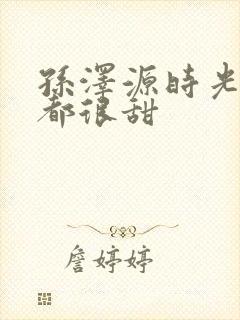 孫澤源時光
都很甜
詹婷婷